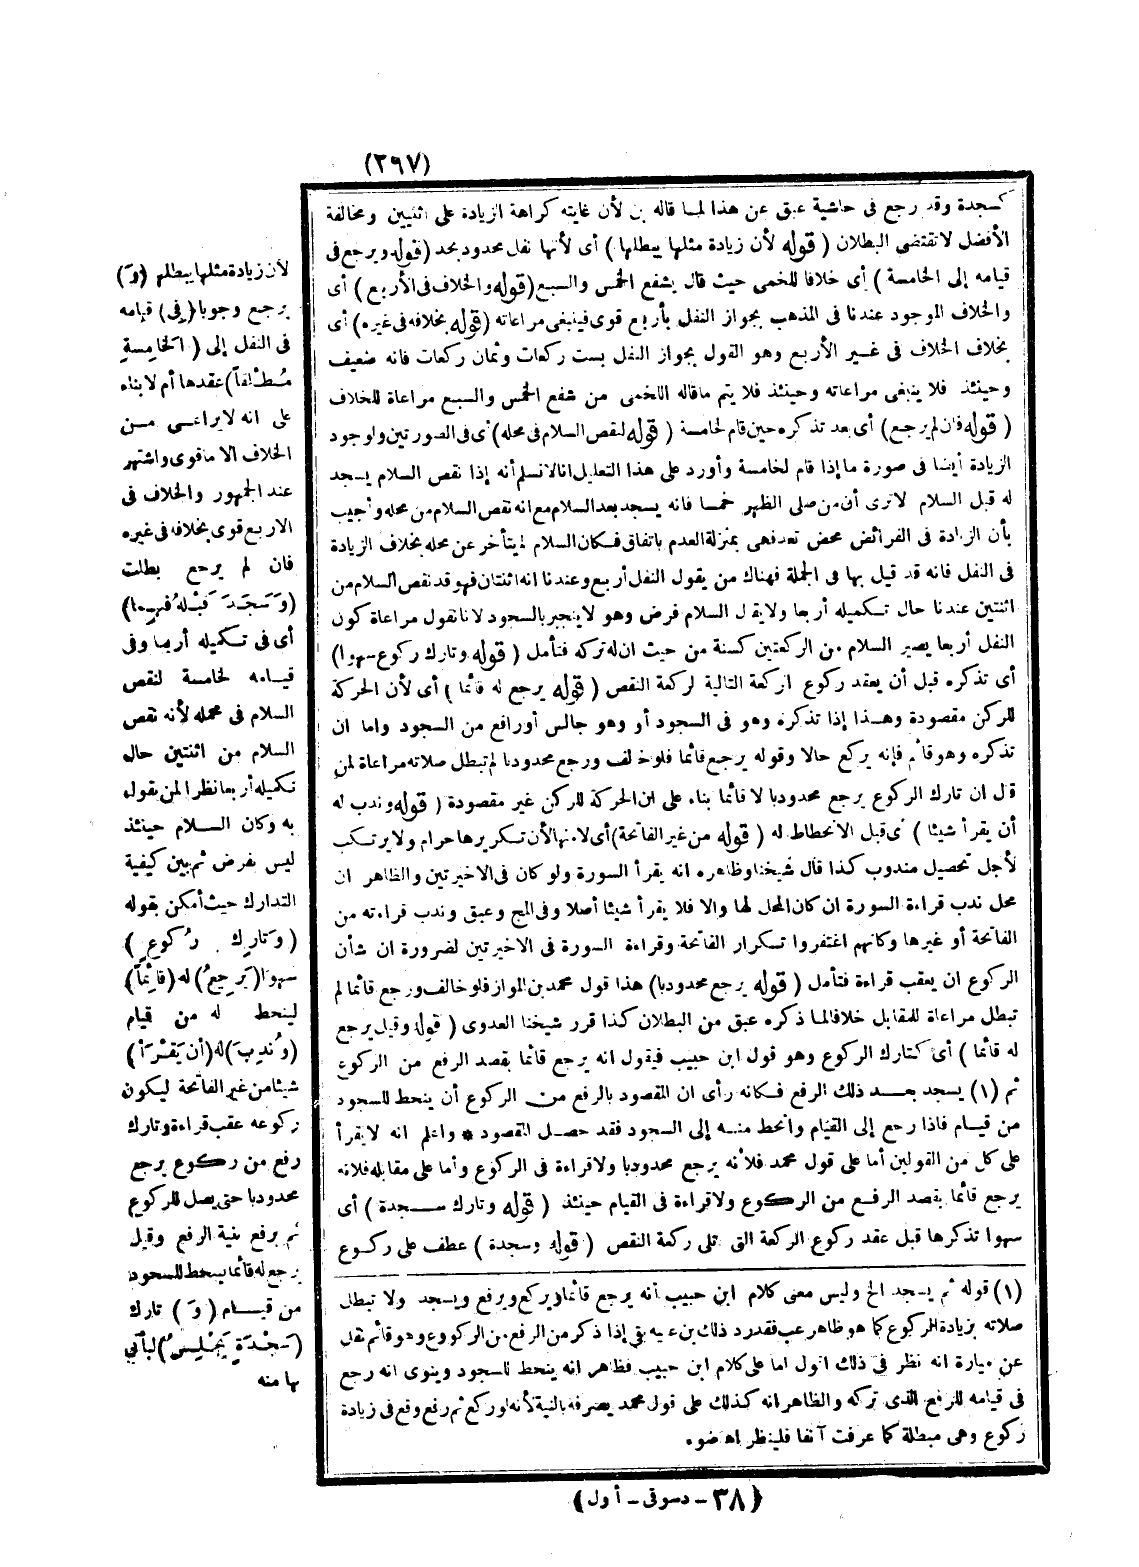 (٢٩٧)
كسجدة وقد رجع فى حاشية عبق عن هذا لما قاله بن لأن غايته كراهة الزيادة على اثنيين ومخالفة
الأفضل لا تقتضى البطلان ( قوله لأن زيادة مثلها يبطلها ) أى لأنها نفل محدود بحد (قوله ويرجع فى
قيامه إلى الخامسة ) أى خلافا للخمى حيث قال يشفع الخمس والسبع (قوله والخلاف فى الأربع ) أى
والخلاف الموجود عندنا فى المذهب بجواز النفل بأربع قوى فينبغى مراعاته (قوله بخلافه فى غيره) أى
بخلاف الخلاف فى غير الأربع وهو القول بجواز النفل بست ركعات وثمان ركعات فانه ضعيف
وحينئذ فلا ينبغى مراعاته وحينئذ فلا يتم ماقاله اللخمى من شفع الخمس والسبع مراعاة للخلاف
( قوله فان لم يرجع ) أى بعد تذكره حين قام لخامسة ( قوله لنقص السلام فى محله) أى فى الصورتين ولوجود
الزيادة أيضا فى صورة ما إذا قام لخامسة وأورد على هذا التعليل انا لانسلم أنه إذا نقص السلام يسجد
له قبل السلام لا ترى أن من صلى الظهر خمسا فانه يسجد بعد السلام مع انه نقص السلام من محله وأجيب
بأن الزيادة فى الفرائض محض تعد فهى بمنزلة العدم باتفاق فكان السلام لم يتأخر عن محله بخلاف الزيادة
فى النفل فانه قد قيل بها فى الجملة فهناك من يقول النفل أربع وعندنا انه اثنتان فهو قد نقص السلام من
اثنتين عندنا حال تكميله أربعا ولا يقال السلام فرض وهو لا ينجبر بالسجود لانا نقول مراعاة كون
النفل أربعا يصير السلام من الركعتين كسنة من حيث ان له تركه فتأمل ( قوله وتارك ركوع سهوا)
أى تذكره قبل أن يعقد ركوع الركعة التالية لركعة النقص ( قوله يرجع له قائما ) أى لأن الحركة
للركن مقصودة وهذا إذا تذكره وهو فى السجود أو وهو جالس أو رافع من السجود واما ان
تذكره وهو قائم فإنه يركع حالا وقوله يرجع قائما فلو خالف ورجع محدودبا لم تبطل صلاته مراعاة لمن
قال ان تارك الركوع يرجع محدودبا لا قائما بناء على ان الحركة للركن غير مقصودة ( قوله وندب له
أن يقرأ شيئا ) أى قبل الانحطاط له ( قوله من غير الفاتحة) أى لا منها لأن تكريرها حرام ولا يرتكب
لأجل تحصيل مندوب كذا قال شيخنا وظاهره انه يقرأ السورة ولو كان فى الاخيرتين والظاهر ان
محل ندب قراءة السورة ان كان المحل لها والا فلا يقرأ شيئا أصلا وفى المج وعبق وندب قراءته من
الفاتحة أو غيرها وكأنهم اغتفروا تسكرار الفاتحة وقراءة السورة فى الاخيرتين لضرورة ان شأن
الركوع ان يعقب قراءة فتأمل ( قوله يرجع محدودبا) هذا قول محمد بن المواز فلو خالف ورجع قائما لم
تبطل مراعاة للمقابل خلافا لما ذكره عبق من البطلان كذا قرر شيخنا العدوى ( قوله وقيل يرجع
له قائما ) أى كتارك الركوع وهو قول ابن حبيب فيقول انه يرجع قائما بقصد الرفع من الركوع
ثم (١) يسجد بعد ذلك الرفع فكانه رأى ان المقصود بالرفع من الركوع أن ينحط للسجود
من قيام فاذا رجع إلى القيام وانحط منه إلى السجود فقد حصل المقصود * واعلم انه لا يقرأ
على كل من القولين أما على قول محمد فلأنه يرجع محدودبا ولا قراءة فى الركوع وأما على مقابله فلانه
يرجع قائما بقصد الرفع من الركوع ولا قراءة فى القيام حينئذ ( قوله وتارك سجدة ) أى
سهوا تذكرها قبل عقد ركوع الركعة التى تلى ركعة النقص ( قوله وسجدة ) عطف على ركوع
(١) قوله ثم يسجد الخ وليس معنى كلام ابن حبيب أنه يرجع قائما فيركع ويرفع ويسجد ولا تبطل
صلاته بزيادة الركوع كما هو ظاهر عب فقد رد ذلك بن عليه بقى إذا ذكر من الرفع من الركوع وهو قائم نقل
عن ميارة انه نظر فى ذلك اقول اما على كلام ابن حبيب فظاهر انه ينحط للسجود وينوى انه رجع
فى قيامه للرفع الذى تركه والظاهر انه كذلك على قول محمد يصرفه بالنية لأنه لو ركع ثم رفع وقع فى زيادة
ركوع وهى مبطلة كما عرفت آنفا فلينظر اه ضوء.
لأن زيادة مثلها يبطلها (وَ)
يرجع وجوبا (فِى) قيامه
فى النفل إلى ( الخَامِسةِ
مُطْلَقاً) عقدها أم لا بناء
على انه لا يراعى من
الخلاف الا ما قوى واشتهر
عند الجمهور والخلاف فى
الاربع قوى بخلافه فى غيره
فان لم يرجع بطلت
(وَسَجَدَ قَبْلَهُ فيهِما)
أى فى تكميله أربعا وفى
قيامه لخامسة لنقص
السلام فى محله لأنه نقص
السلام من اثنتين حال
تكميله أربعا نظرا لمن يقول
به وكان السلام حينئذ
ليس بفرض ثم بين كيفية
التدارك حيث أمكن بقوله
( وَتارِك رُكُوعٍ )
سهوا (يَرجِعُ) له (قائماً)
لينحط له من قيام
(وَنُدِبَ) له (أن يَقْرَأ)
شيئا من غير الفاتحة ليكون
ركوعه عقب قراءة وتارك
رفع من ركوع يرجع
محدودبا حتى يصل للركوع
ثم يرفع بنية الرفع وقيل
يرجع له قائما ينحط للسجود
من قيام ( وَ ) تارك
(سَجْدَةٍ يَجْلِسُ) ليأتى
بها منه
(٣٨ - دسوقى - أول)